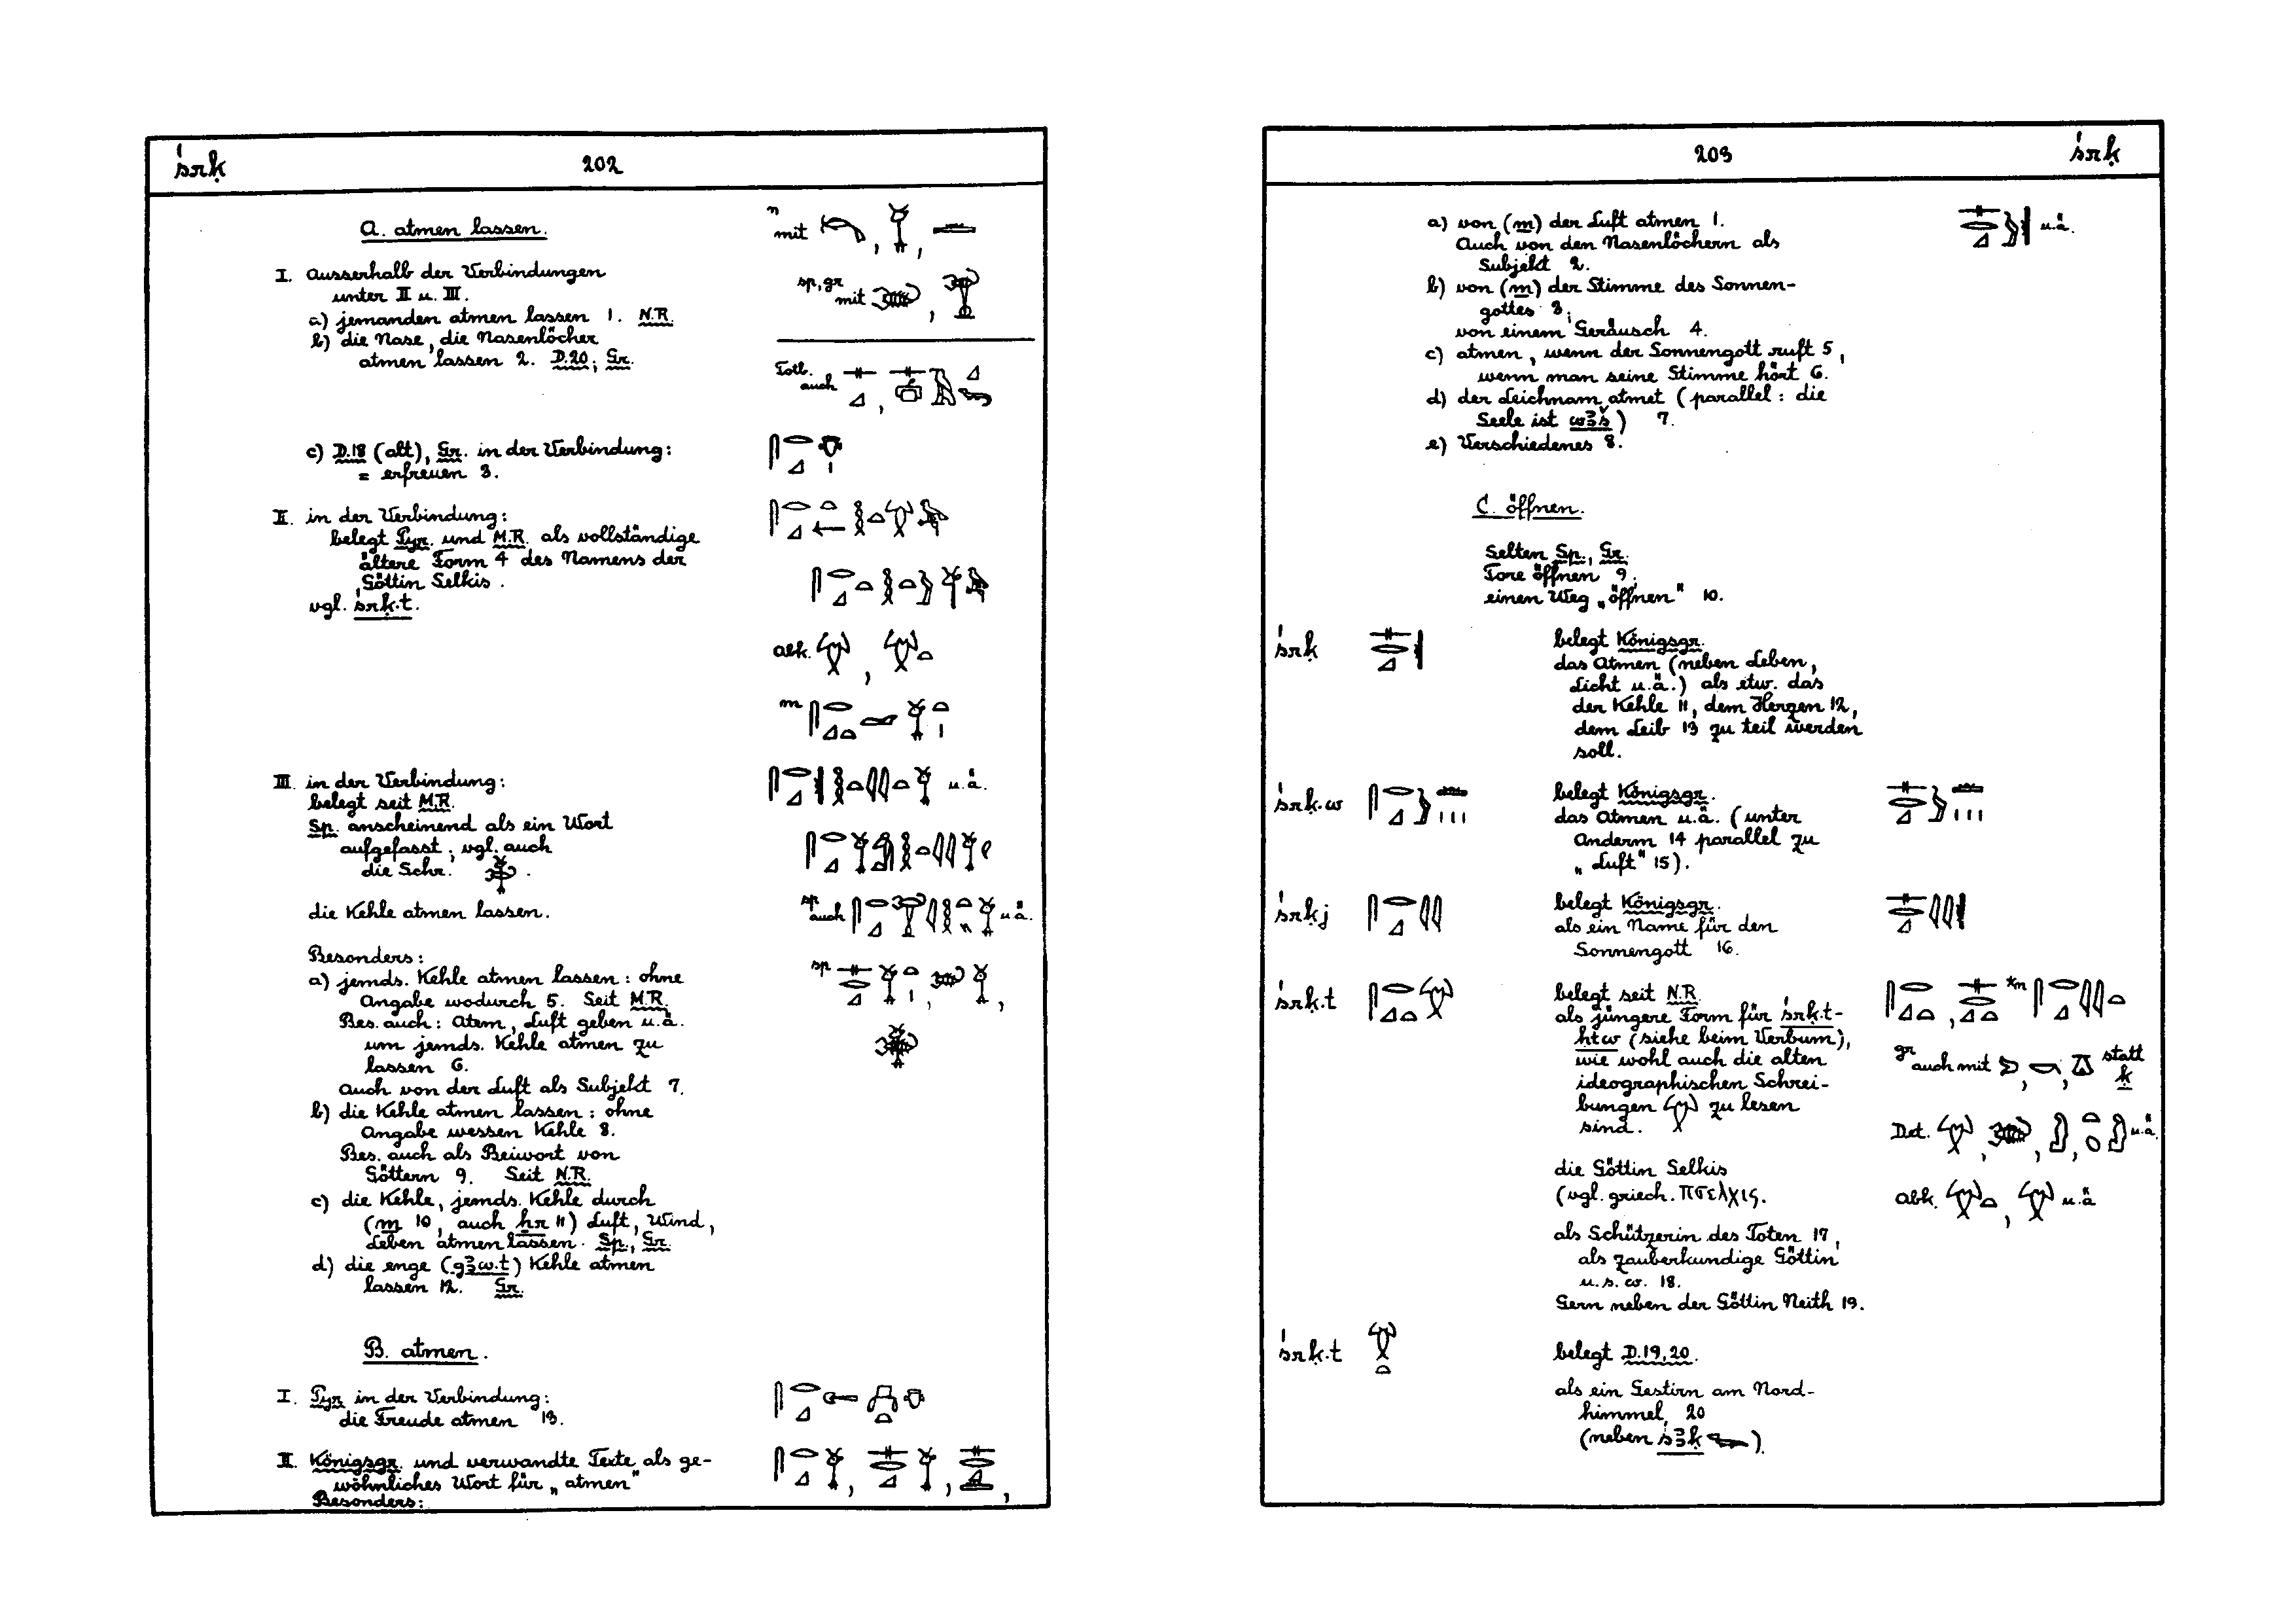 śrḳ 202
A. atmen lassen.
n mit
I. Ausserhalb der Verbindungen
unter II u. III.
sp, gr mit
a) jemanden atmen lassen 1. N.R.
b) die Nase, die Nasenlöcher
atmen lassen 2. D.20; Gr.
Totb. auch
c) D.18 (alt), Gr. in der Verbindung:
= erfreuen 3.
II. in der Verbindung:
belegt Pyr. und M.R. als vollständige
ältere Form 4 des Namens der
Göttin Selkis.
vgl. śrḳ.t.
abk.
m
III. in der Verbindung: u.ä.
belegt seit M.R.
Sp. anscheinend als ein Wort
aufgefasst; vgl. auch
die Schr.
die Kehle atmen lassen.
sp auch u.ä.
Besonders:
sp
a) jemds. Kehle atmen lassen: ohne
Angabe wodurch 5. Seit M.R.
Bes. auch: Atem, Luft geben u.ä.
um jemds. Kehle atmen zu
lassen 6.
Auch von der Luft als Subjekt 7.
b) die Kehle atmen lassen: ohne
Angabe wessen Kehle 8.
Bes. auch als Beiwort von
Göttern 9. Seit N.R.
c) die Kehle, jemds. Kehle durch
(m 10, auch ẖr 11) Luft, Wind,
Leben atmen lassen. Sp., Gr.
d) die enge (gꜣw.t) Kehle atmen
lassen 12. Gr.
B. atmen.
I. Pyr. in der Verbindung:
die Freude atmen 13.
II. Königsgr. und verwandte Texte als ge-
wöhnliches Wort für „atmen"
Besonders:
203 śrḳ
a) von (m) der Luft atmen 1. u.ä.
Auch von den Nasenlöchern als
Subjekt 2.
b) von (m) der Stimme des Sonnen-
gottes 3;
von einem Geräusch 4.
c) atmen, wenn der Sonnengott ruft 5,
wenn man seine Stimme hört 6.
d) der Leichnam atmet (parallel: die
Seele ist wꜣš) 7.
e) Verschiedenes 8.
C. öffnen.
Selten Sp., Gr.
Tore öffnen 9.
einen Weg „öffnen" 10.
śrḳ belegt Königsgr.
das Atmen (neben Leben,
Licht u.ä.) als etw. das
der Kehle 11, dem Herzen 12,
dem Leib 13 zu teil werden
soll.
śrḳ.w belegt Königsgr.
das Atmen u.ä. (unter
Anderm 14 parallel zu
„Luft" 15).
śrḳj belegt Königsgr.
als ein Name für den
Sonnengott 16.
śrḳ.t belegt seit N.R.
als jüngere Form für śrḳ.t-
ḥtw (siehe beim Verbum),
wie wohl auch die alten
ideographischen Schrei-
bungen zu lesen
sind.
gr auch mit statt ḳ
Det. u.ä.
die Göttin Selkis
(vgl. griech. Πσελχις.
abk. u.ä
als Schützerin des Toten 17,
als zauberkundige Göttin
u.s.w. 18.
Gern neben der Göttin Neith 19.
śrḳ.t belegt D.19, 20.
als ein Gestirn am Nord-
himmel 20
(neben śꜣḳ ).